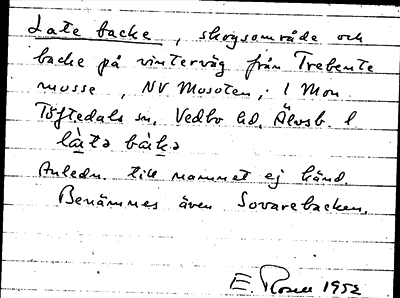 Late backe, skogsområde och
backe på vinterväg från Trebente
mosse, NV Mosoten, 1 Mon
Töftedals sn, Vedbo hd, Älvsb. l
là̤tə bàkə
Anledn. till namnet ej känd.
Benämnes även Sovarebacken.
E. Rosell 1952